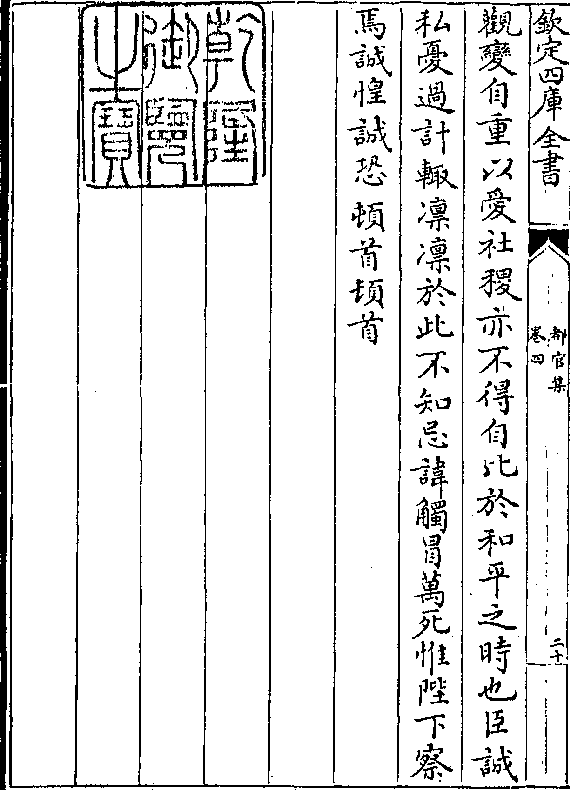 欽定四庫全書
都官集
卷四
二十
觀變自重以愛社稷亦不得自比於和平之時也臣誠
私憂過計輙凛凛於此不知忌諱觸冒萬死惟陛下察
焉誠惶誠恐頓首頓首
乾隆
御覽
之寶